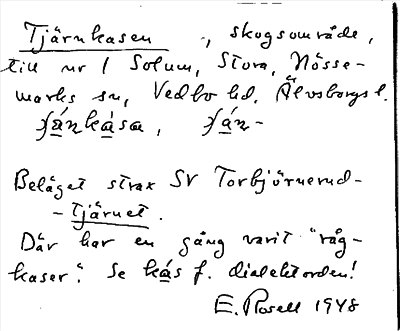 Tjärnkasen, skogsområde,
till nr 1 Solum, Stora, Nösse-
marks sn, Vedbo hd, Älvsborgs l.
ʃä́nkàsa, ʃä́n-
Beläget strax SV Torbjörnerud-
-tjärnet.
Där har en gång varit "råg-
kaser". Se kås f. dialektorden!
E. Rosell 1948